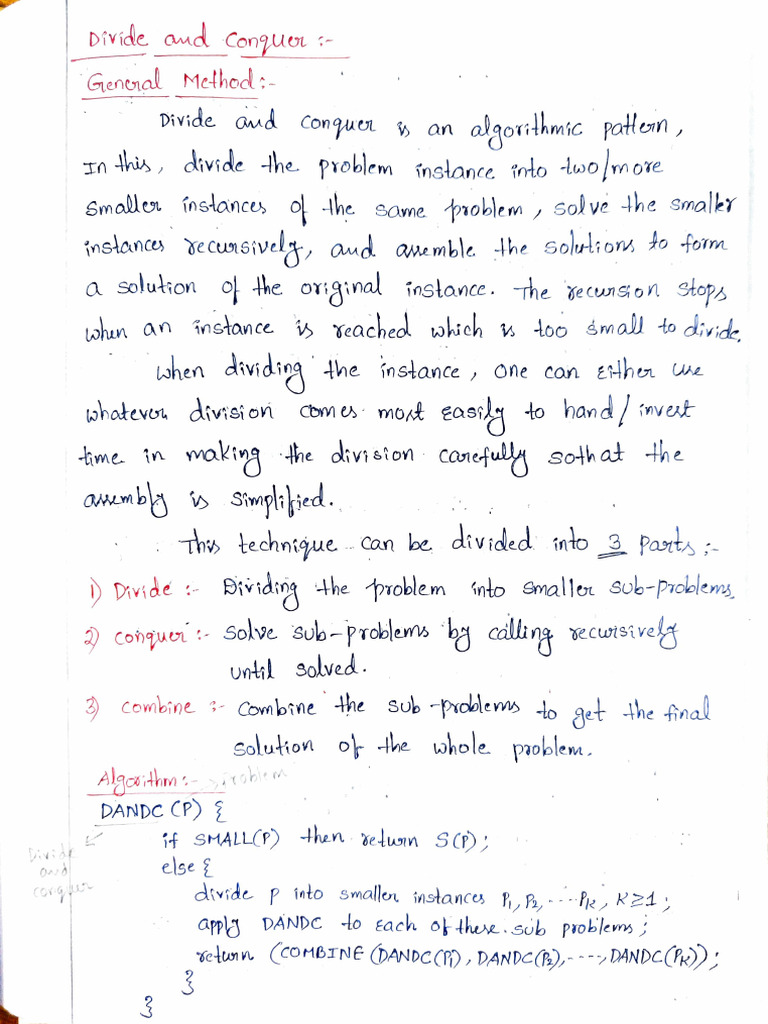 Divide and Conquer :-
General Method :-
Divide and conquer is an algorithmic pattern,
In this, divide the problem instance into two/more
smaller instances of the same problem, solve the smaller
instances recursively, and assemble the solutions to form
a solution of the original instance. The recursion stops
when an instance is reached which is too small to divide.
When dividing the instance, one can either use
whatever division comes most easily to hand/invest
time in making the division carefully sothat the
assembly is simplified.
This technique can be divided into 3 parts :-
1) Divide :- Dividing the problem into smaller sub-problems.
2) conquer :- solve sub-problems by calling recursively
until solved.
3) combine :- combine the sub-problems to get the final
solution of the whole problem.
Algorithm :- problem
DANDC (P) {
if SMALL(P) then return S(P);
else {
divide p into smaller instances P1, P2, .... Pk, K≥1;
apply DANDC to each of these sub problems;
return (COMBINE (DANDC(P1), DANDC(P2), ----, DANDC(Pk));
}
}
Divide
and
conquer